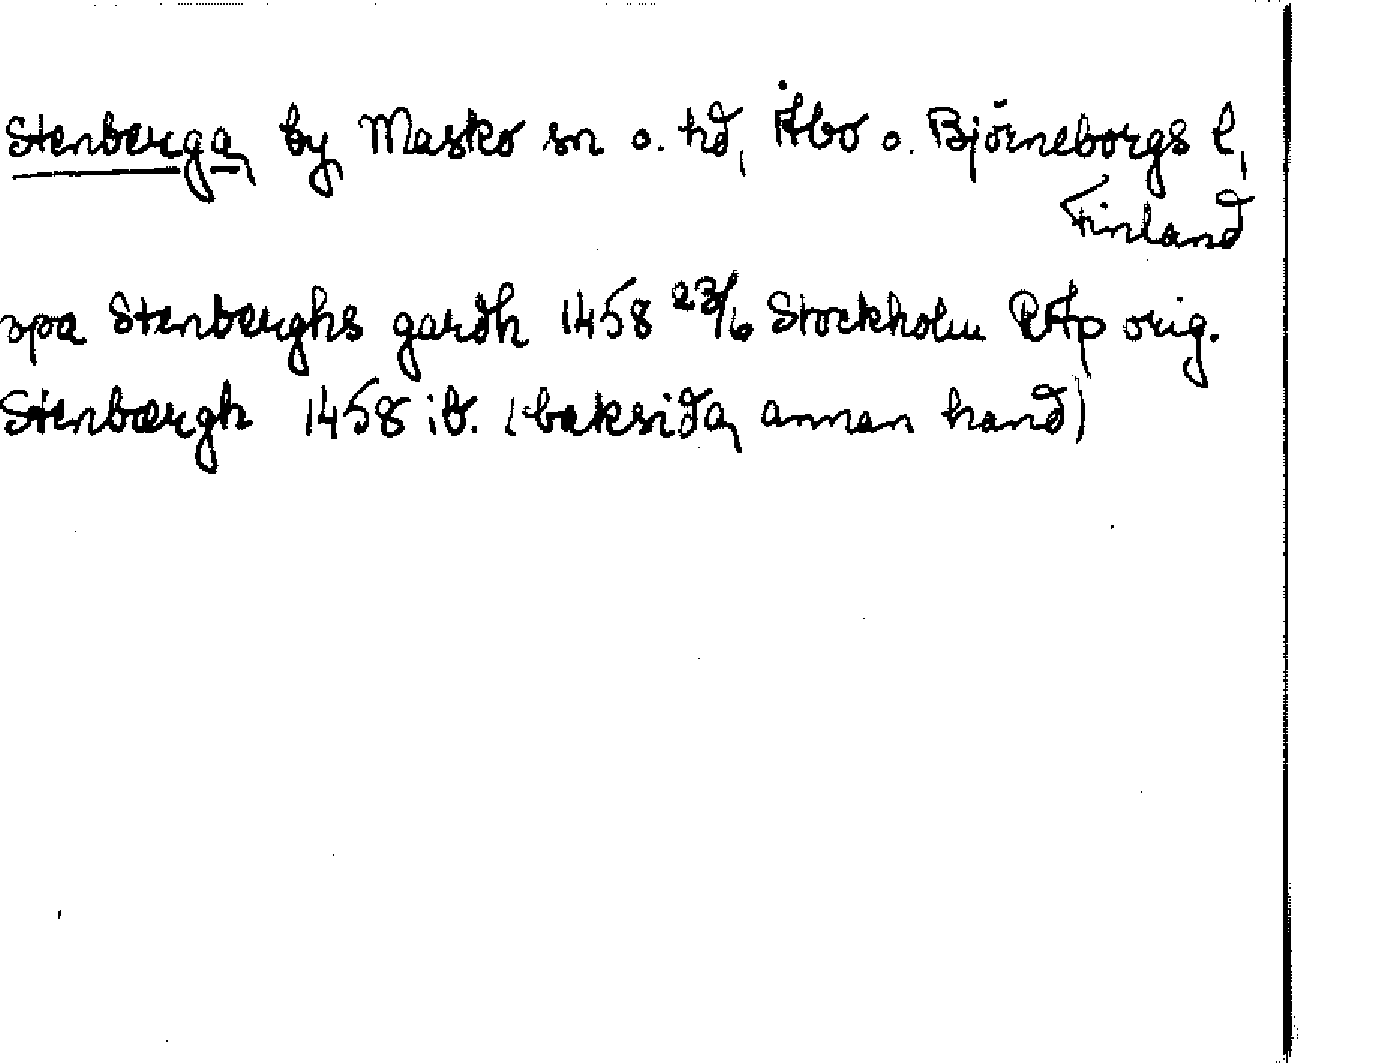 Stenberga, by Masko sn o. hd, Åbo o. Björneborgs l,
Finland
opa Stenberghs gardh 1458 23/6 Stockholm RAp orig.
Stenbærgh 1458 ib. (baksida, annan hand)